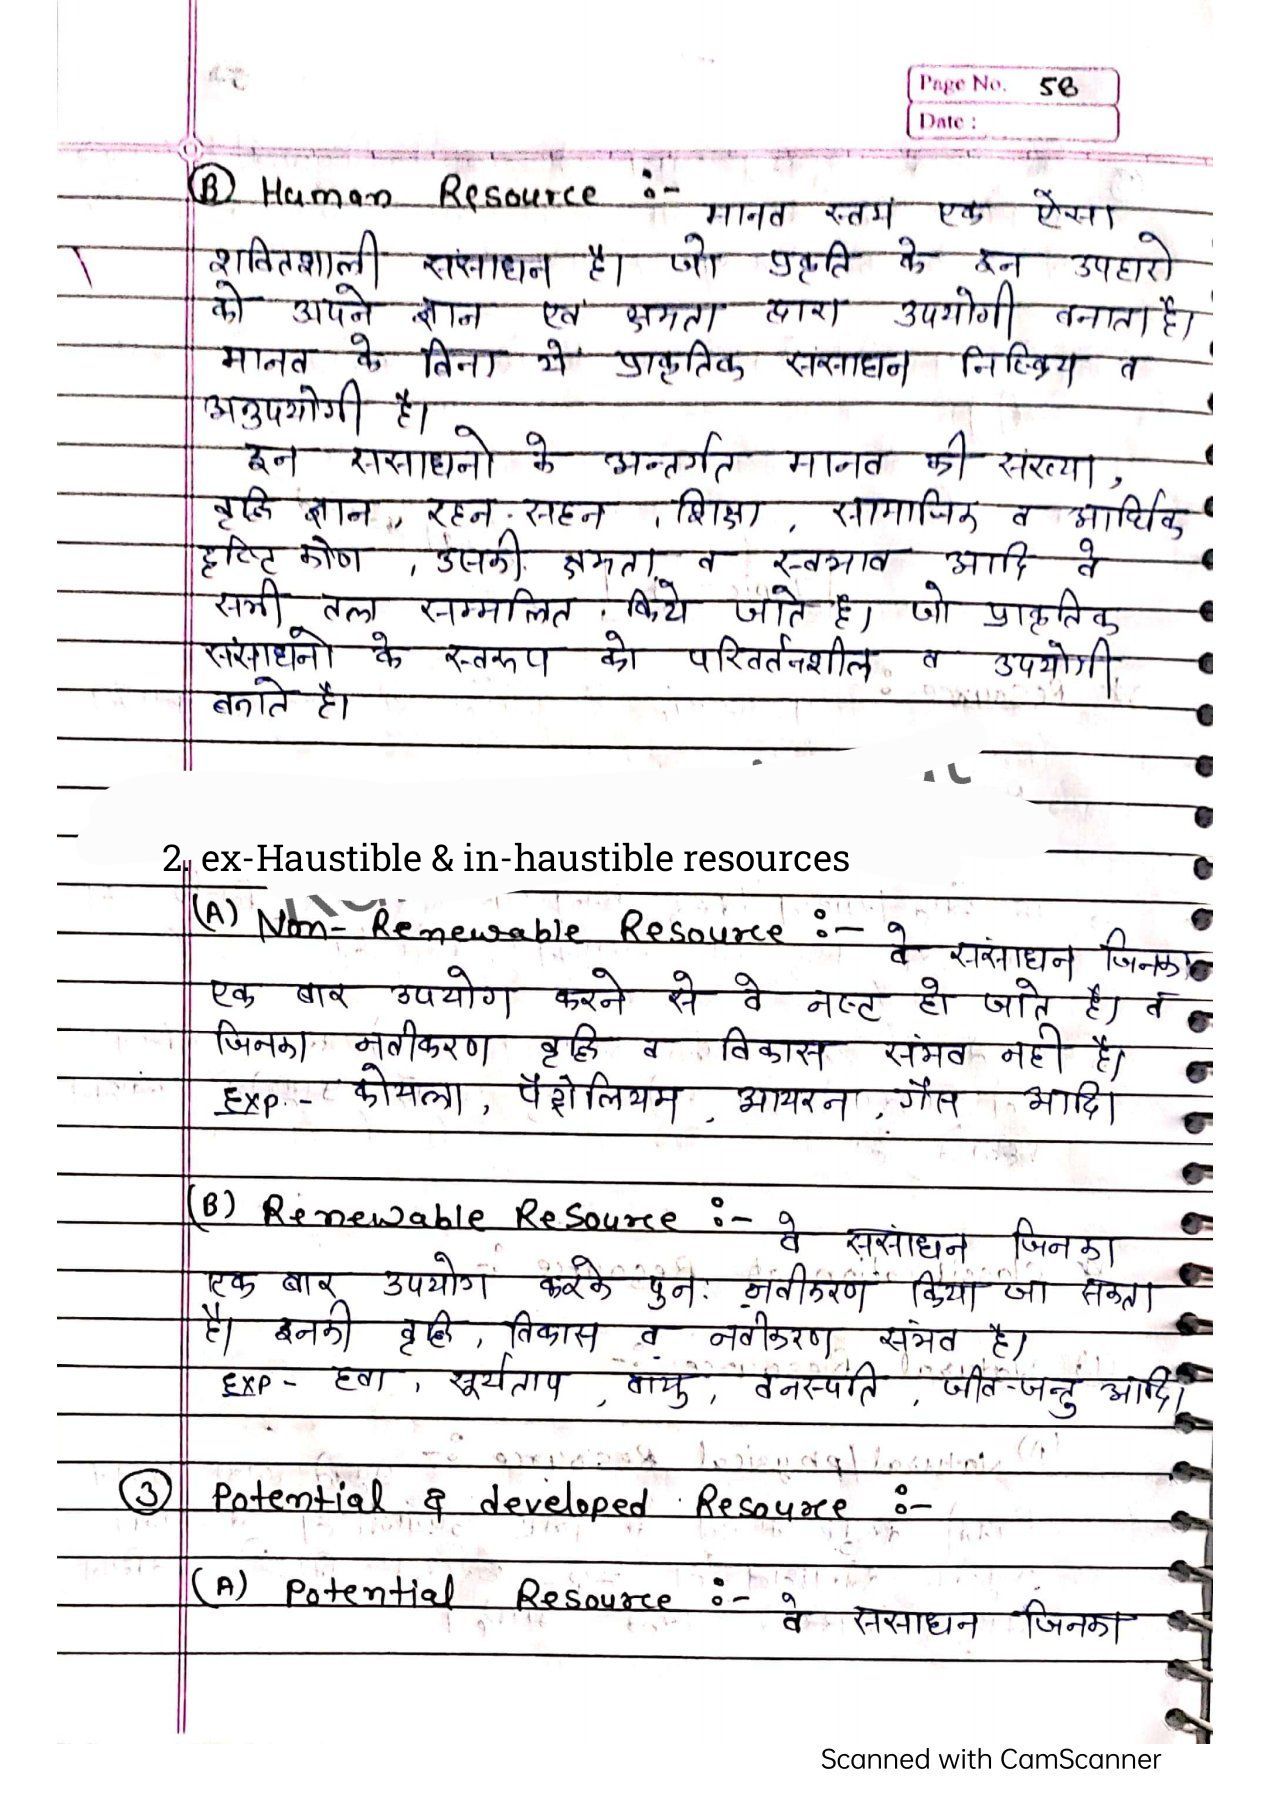 Page No. 58
Date :
(B) Human Resource :-
मानव स्वयं एक ऐसा
शक्तिशाली संसाधन है। जो प्रकृति के इन उपहारो
को अपने ज्ञान एवं क्षमता द्वारा उपयोगी बनाता है।
मानव के बिना ये प्राकृतिक संसाधन निष्क्रिय व
अनुपयोगी है।
इन संसाधनो के अन्तर्गत मानव की संख्या,
वृद्धि ज्ञान, रहन-सहन, शिक्षा, सामाजिक व आर्थिक
दृष्टि कोण, उसकी क्षमता व स्वभाव आदि वे
सभी तत्व सम्मलित किये जाते है। जो प्राकृतिक
संसाधनो के स्वरूप को परिवर्तनशील व उपयोगी
बनाते है।
2. ex-Haustible & in-haustible resources
(A) Non-Renewable Resource :-
वे संसाधन जिनका
एक बार उपयोग करने से वे नष्ट हो जाते है। व
जिनका नवीकरण वृद्धि व विकास संभव नही है।
Exp. - कोयला, पैट्रोलियम, आयरन, गैस आदि।
(B) Renewable Resource :-
वे संसाधन जिनका
एक बार उपयोग करके पुनः नवीकरण किया जा सकता
है। इनकी वृद्धि, विकास व नवीकरण संभव है।
Exp - हवा, सूर्यताप, वायु, वनस्पति, जीव-जन्तु आदि।
(3) Potential & developed Resource :-
(A) Potential Resource :-
वे संसाधन जिनका
Scanned with CamScanner